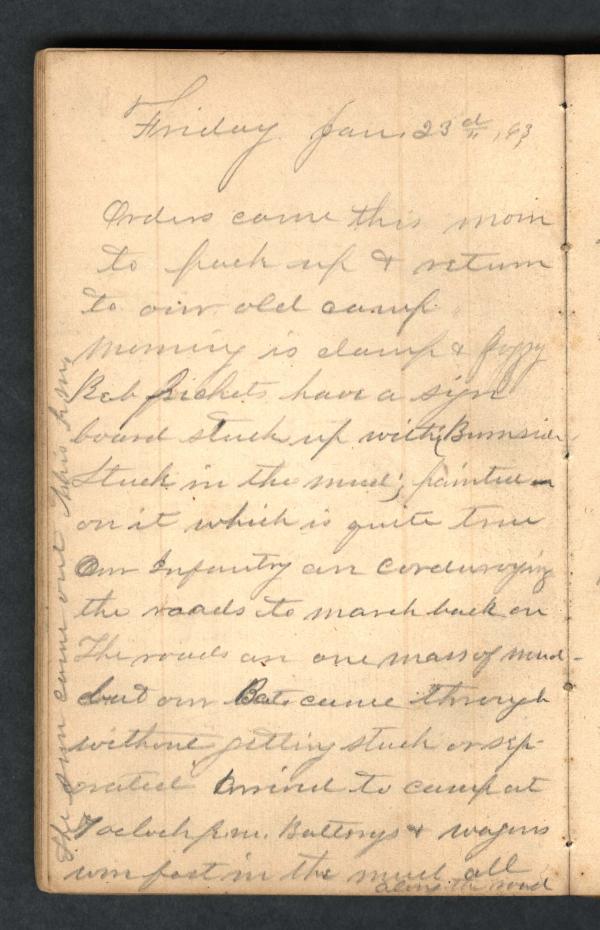 Friday Jan. 23d, 63
Orders came this morn
to pack up & return
to our old camp
Morning is damp & foggy
Reb pickets have a sign
board stuck up with (Burnside
Stuck in the mud; painted
on it which is quite true
Our Infantry are corduroying
the roads to march back on
The roads are one mass of mud-
but our Bat. came through
without getting stuck or sep-
erated Arrived to camp at
7 oclock p.m. Batterys & wagons
were fast in the mud all
along the road
The sun came out this